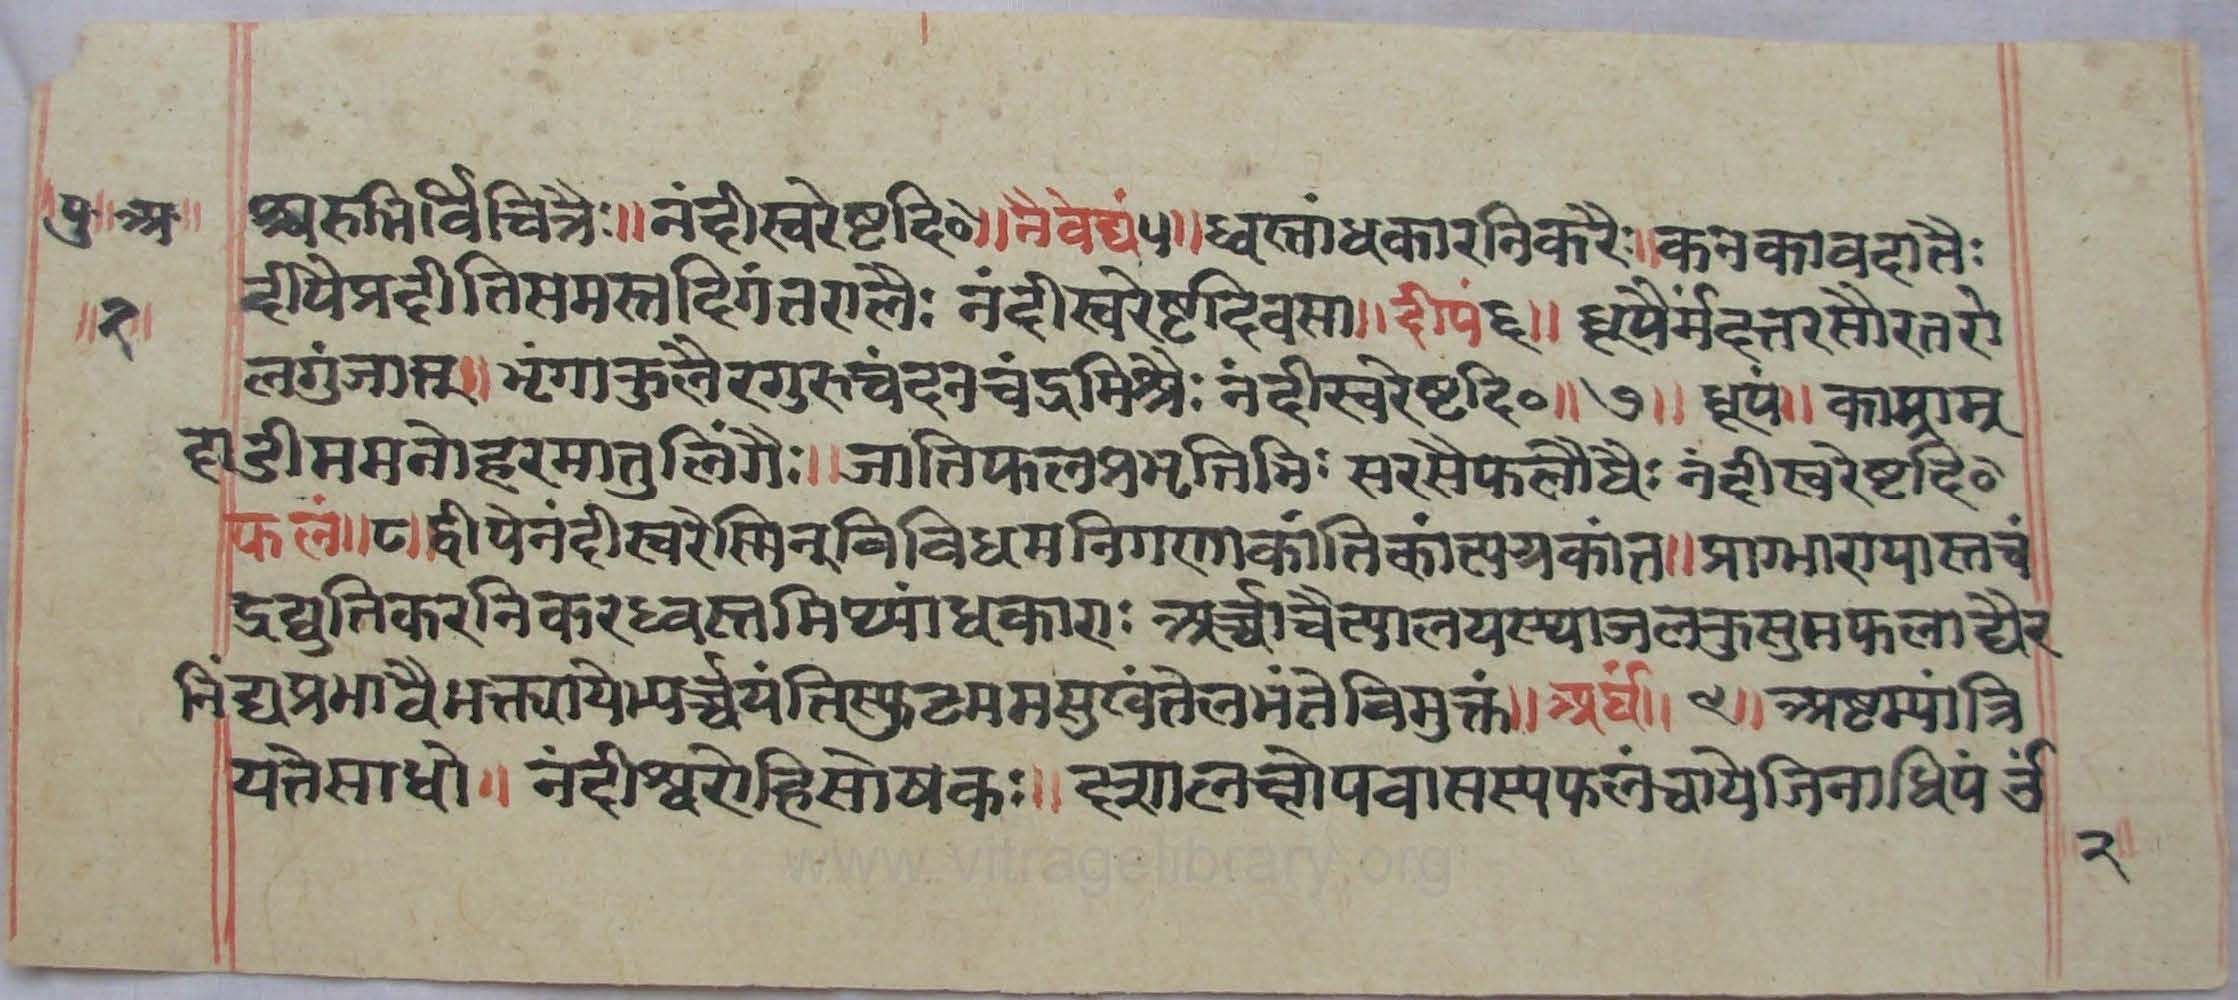 पु॥अ॥
॥२॥
श्चरुभिर्विचित्रैः॥नंदीस्वरेष्टदि०॥नैवेद्यं५॥ध्वस्तांधकारनिकरैः॥कनकावदातैः
दीपैप्रदीप्तिसमस्तदिगंतरालैः नंदीस्वरेष्टदिवसा॥दीपं६॥ धूपैर्म
लगुंजा॥भृंगाकुलैरगुरुचंदनचंद्रमिश्रैः नंदीस्वरेष्टदि०॥७॥ धूपं॥ काम्राम्र
दाडीममनोहरमातुलिंगैः॥जातिफलप्रभृतिभिः सरसैफलौघैः नंदीस्वरेष्टदि०
फलं॥८॥द्वीपेनंदीस्वरेस्मिन्विविधमनिगणाकांतिकांत्यग्रकांत॥प्राग्भारायास्तचं
द्रद्युतिकरनिकरध्वस्तमिथ्यांधकाराः अर्च्चाचैत्यालयस्याजलकुसुमफलाद्यैर
निंद्यप्रभावैभक्त्यायेभ्यर्च्चयंतिस्फुटममसुखंतेलभंतेविमुक्तं॥अर्घं॥ ९॥ अष्टम्यांत्रि
यतेसाधो॥ नंदीश्वरोहिसोषकः॥ पवासस्यफलंध्यायेजिनाधिपं
२
www.vitragelibrary.org